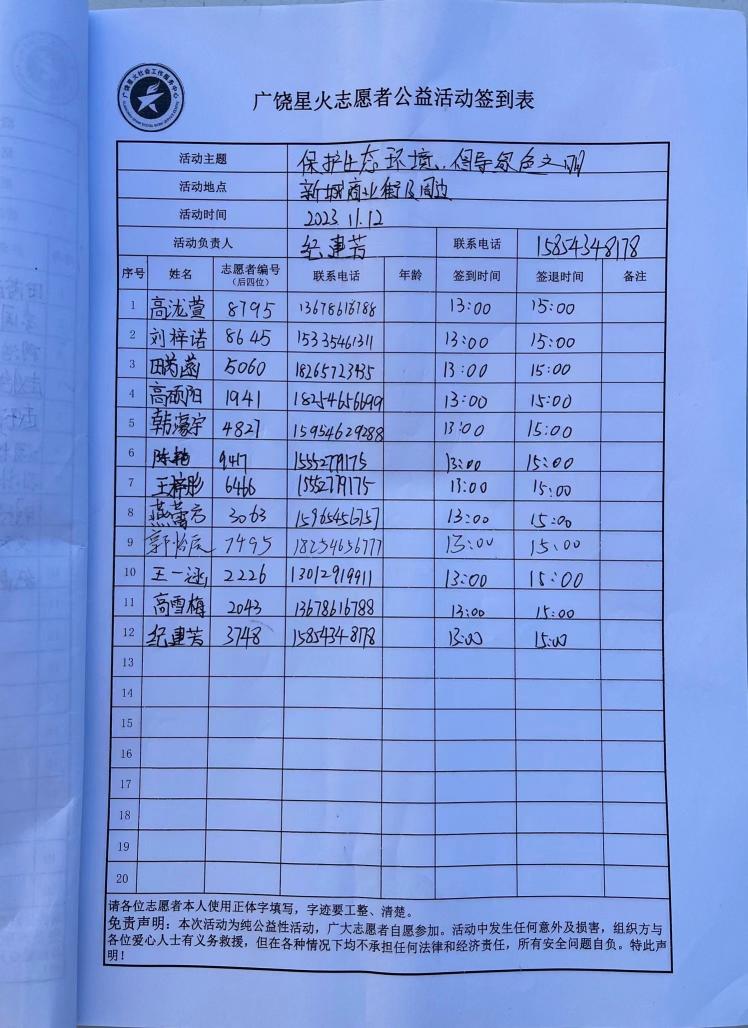 广饶星火社会工作服务中心
广饶星火志愿者公益活动签到表
活动主题 保护生态环境，倡导绿色文明
活动地点 新城商业街及周边
活动时间 2023.11.12
活动负责人 纪建芳 联系电话 15854348178
序号 姓名 志愿者编号（后四位） 联系电话 年龄 签到时间 签退时间 备注
1 高泷萱 8795 13678618788 13:00 15:00
2 刘梓诺 8645 15335461311 13:00 15:00
3 田芮菡 5060 18265723435 13:00 15:00
4 高硕阳 1941 18254656699 13:00 15:00
5 韩濠宇 4827 15954629288 13:00 15:00
6 陈艳 947 15552779175 13:00 15:00
7 王梓彤 6466 15552779175 13:00 15:00
8 3063 15965456757 13:00 15:00
9 郭怡辰 7495 18254656777 13:00 15:00
10 王一涵 2226 13012919911 13:00 15:00
11 高雪梅 2043 13678616788 13:00 15:00
12 纪建芳 3748 15854348178 13:00 15:00
13
14
15
16
17
18
19
20
请各位志愿者本人使用正体字填写，字迹要工整、清楚。
免责声明：本次活动为纯公益性活动，广大志愿者自愿参加。活动中发生任何意外及损害，组织方与
各位爱心人士有义务救援，但在各种情况下均不承担任何法律和经济责任，所有安全问题自负。特此声
明！